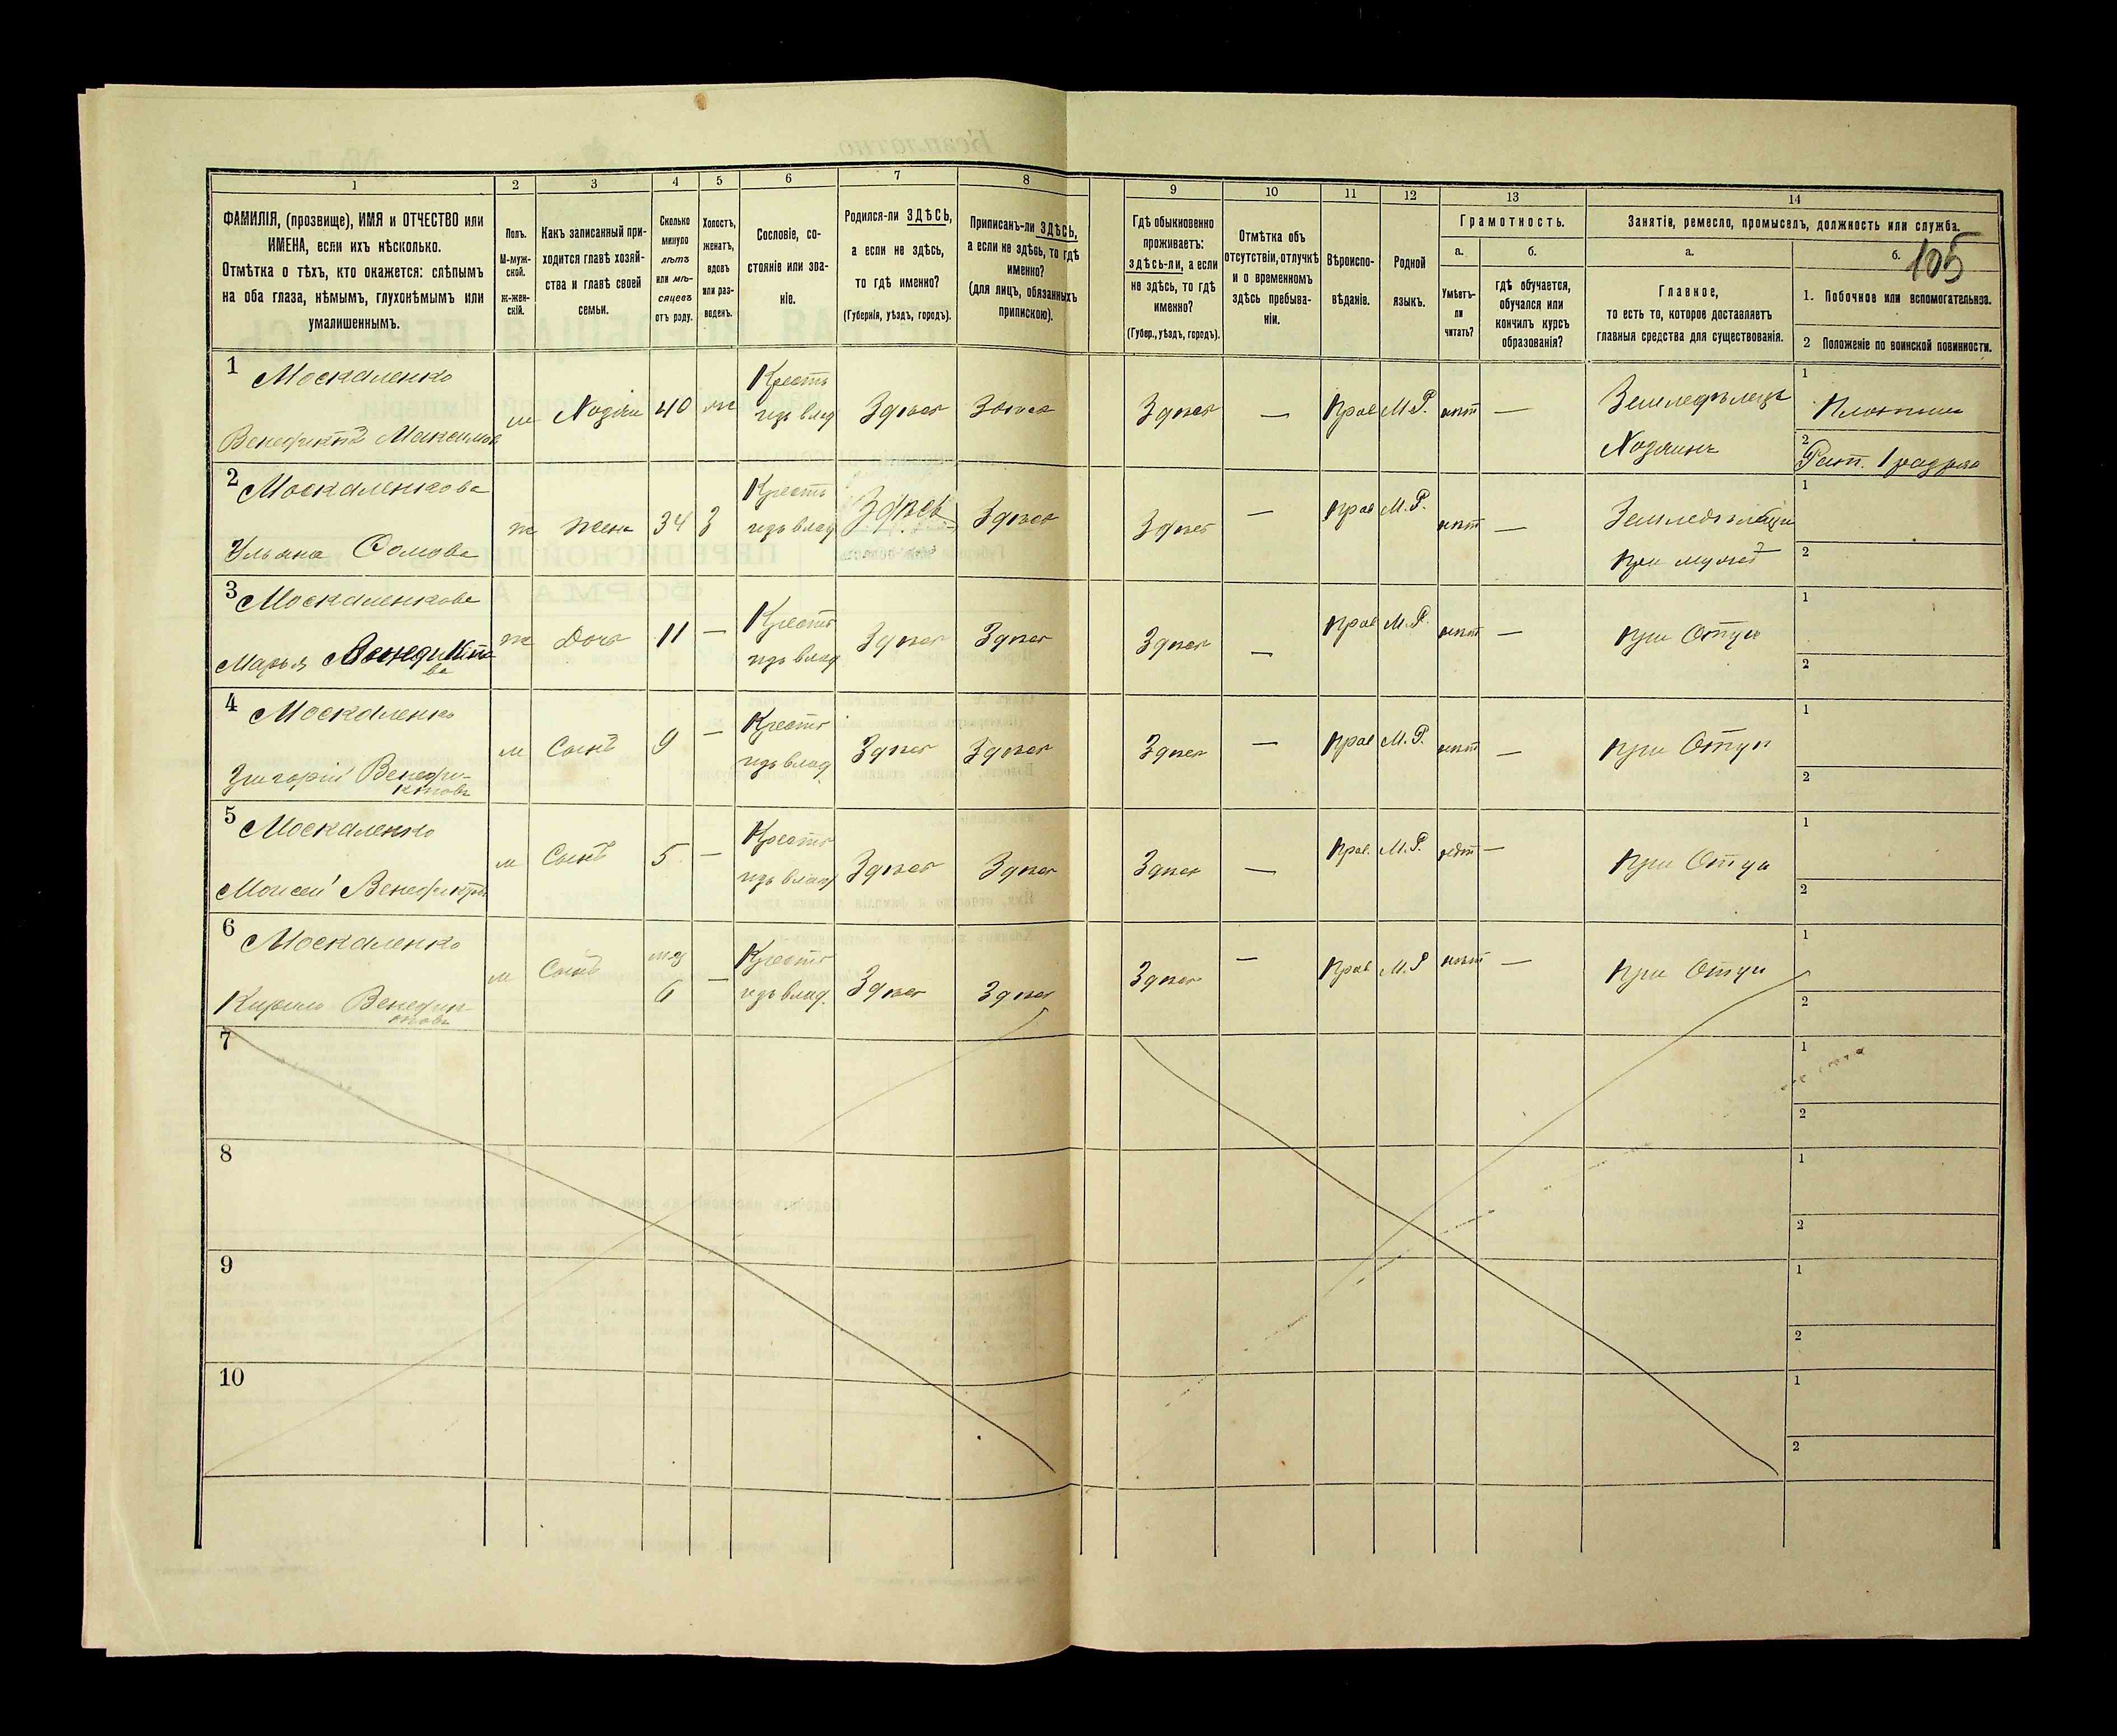 105
1 2 3 4 5 6 7 8 9 10 11 12 13 14
ФАМИЛІЯ, (прозвище), ИМЯ и ОТЧЕСТВО или
ИМЕНА, если ихъ нѣсколько.
Отмѣтка о тѣхъ, кто окажется: слѣпымъ
на оба глаза, нѣмымъ, глухонѣмымъ или
умалишеннымъ.
Полъ.
М-муж-
ской.
ж-жен-
скій.
Какъ записанный при-
ходится главѣ хозяй-
ства и главѣ своей
семьи.
Сколько
минуло
лѣтъ
или мѣ-
сяцевъ
отъ роду.
Холостъ,
женатъ,
вдовъ
или раз-
веденъ.
Сословіе, со-
стояніе или зва-
ніе.
Родился-ли ЗДѢСЬ,
а если не здѣсь,
то гдѣ именно?
(Губернія, уѣздъ, городъ).
Приписанъ-ли ЗДѢСЬ,
а если не здѣсь, то гдѣ
именно?
(для лицъ, обязанныхъ
припискою).
Гдѣ обыкновенно
проживаетъ:
здѣсь-ли, а если
не здѣсь, то гдѣ
именно?
(Губер., уѣздъ, городъ).
Отмѣтка объ
отсутствіи, отлучкѣ
и о временномъ
здѣсь пребыва-
ніи.
Вѣроиспо-
вѣданіе.
Родной
языкъ.
Грамотность.
а.
Умѣетъ-
ли
читать?
б.
гдѣ обучается,
обучался или
кончилъ курсъ
образованія?
Занятія, ремесло, промыселъ, должность или служба.
а.
Главное,
то есть то, которое доставляетъ
главныя средства для существованія.
б.
1. Побочное или вспомогательное.
2 Положеніе по воинской повинности.
1 Москаленко
Венедиктъ Максимов
м Хозяин 40 ж Крестъ Здѣсь Здѣсь Здѣсь — Прав М.Р. нѣт — Земледѣлецъ
Хозяинъ
1 Плотник
2 Рат. 1 разряд
2 Москаленкова
Ульяна Фомова
ж Жена 34 З Крестъ Здѣсь Здѣсь Здѣсь — Прав М.Р. нѣт —
при мужѣ
1
2
3 Москаленкова
Марья Венедикто
ва
ж Дочь 11 — Крестъ Здѣсь Здѣсь Здѣсь — Прав М.Р. нѣт — при Отцѣ
1
2
4 Москаленко
Григорій Венеди-
ктовъ
м Сынъ 9 — Крестъ Здѣсь Здѣсь Здѣсь — Прав М.Р. нѣт — при Отцѣ
1
2
5 Москаленко
Моисей Венедиктов
м Сынъ 5 — Крестъ Здѣсь Здѣсь Здѣсь — Прав. М.Р. нѣт — при Отцѣ
1
2
6 Москаленко
Кирило Венеди-
ктовъ
м Сынъ 6 — Крестъ Здѣсь Здѣсь Здѣсь — Прав М.Р нѣт — при Отцѣ
1
2
7
1
2
8
1
2
9
1
2
10
1
2